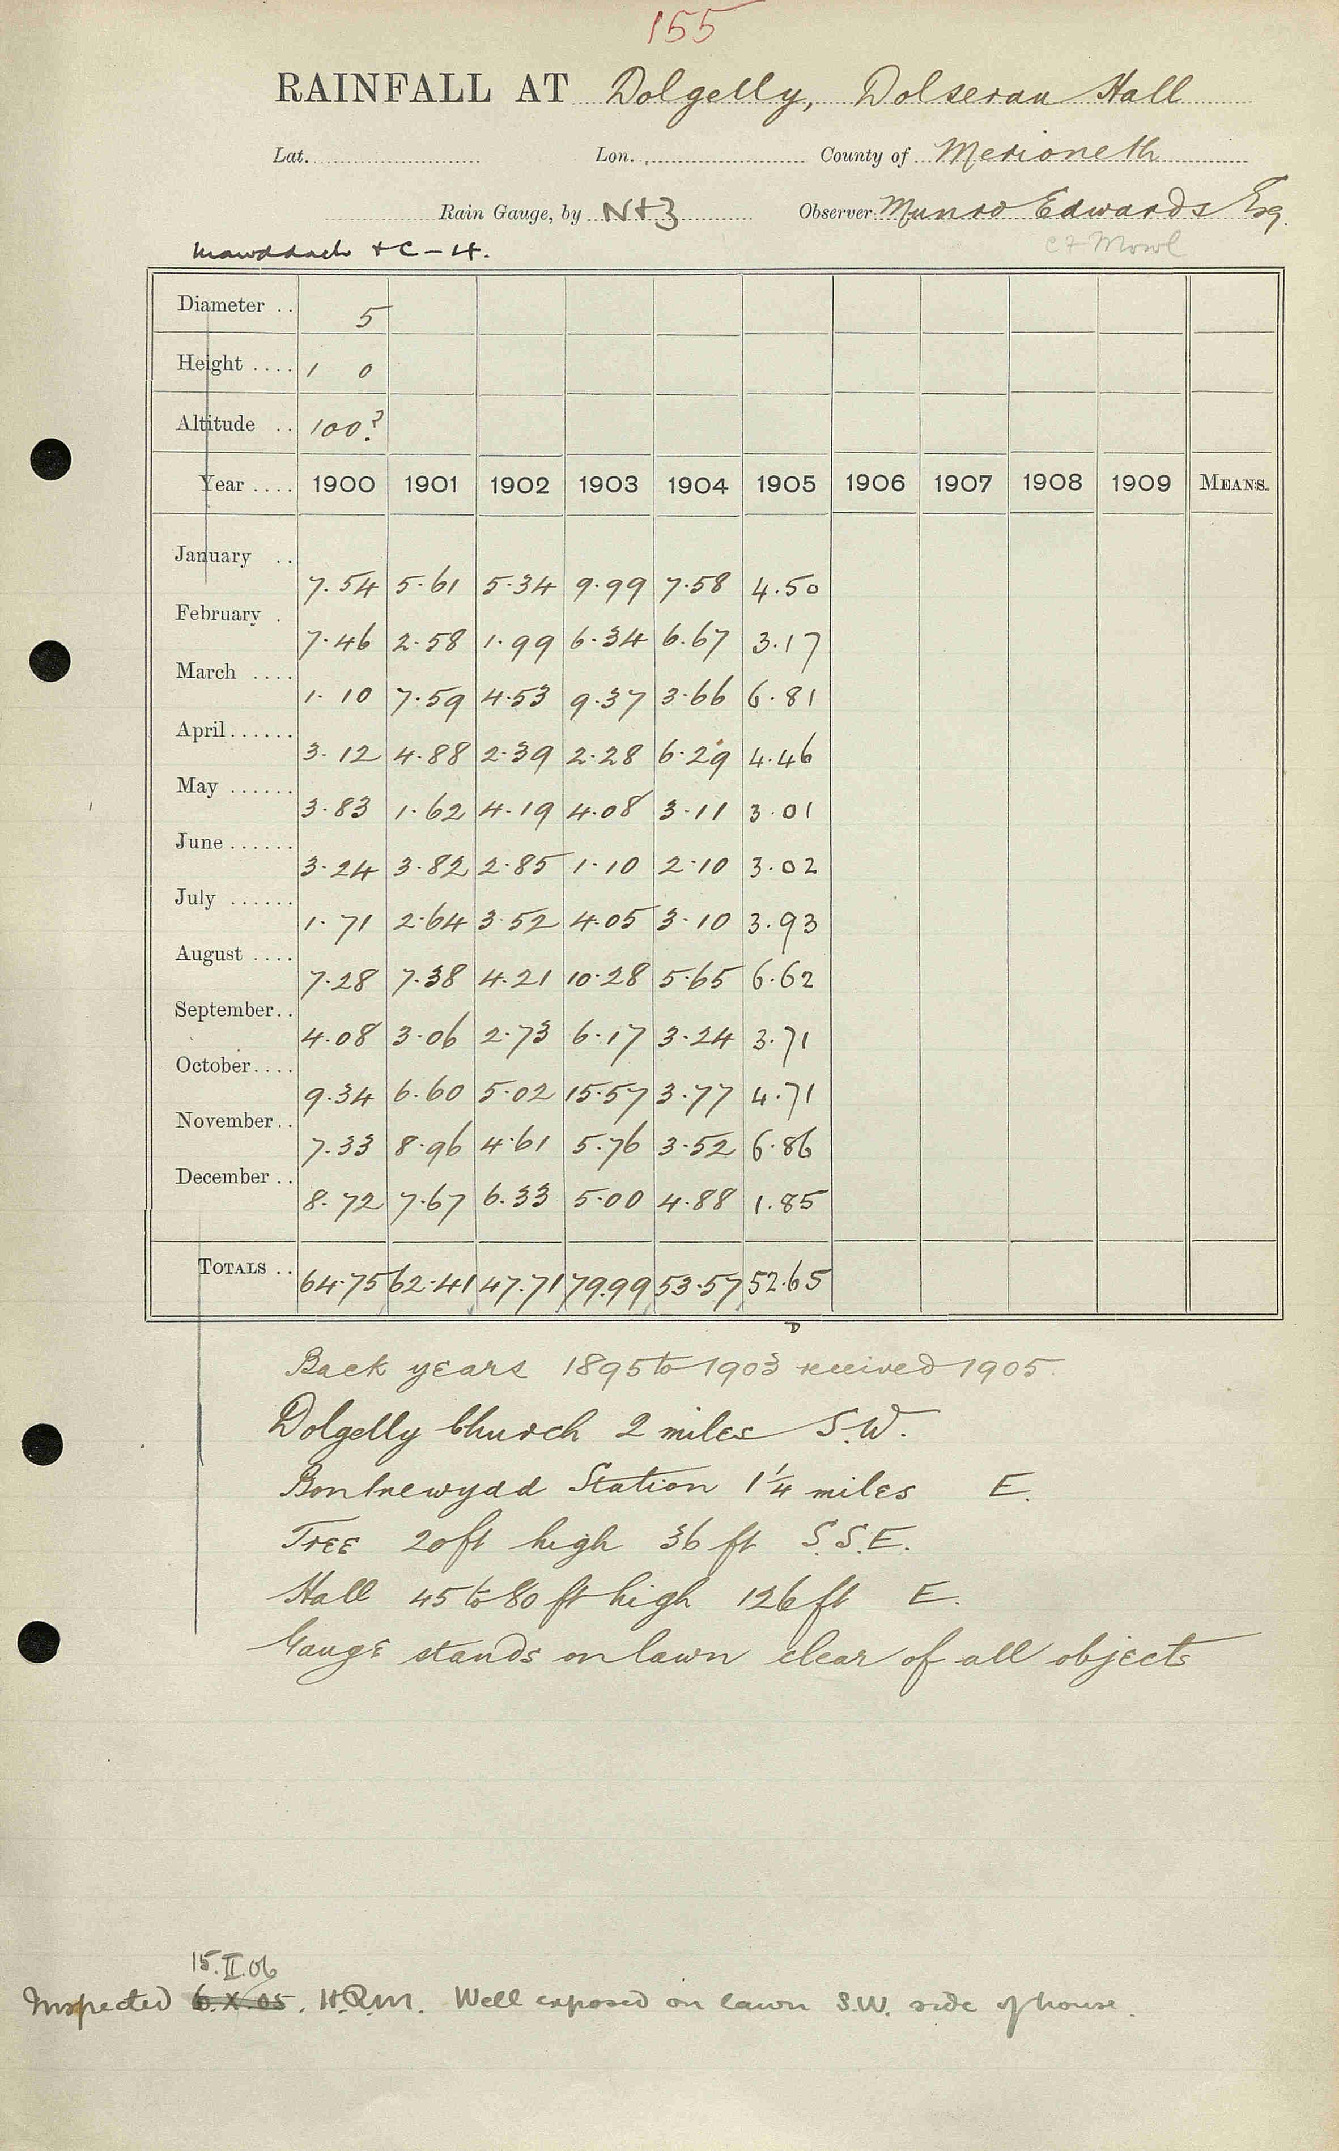 155
RAINFALL AT Dolgelly, Dolserau Hall
Lat. Lon. County of Merioneth
Rain Gauge, by N+3 Observer Munro Edwards Esq.
Mawddach + C - H.
Diameter .. 5
Height .... 1 0
Altitude .. 100?
Year .... 1900 1901 1902 1903 1904 1905 1906 1907 1908 1909 MEANS.
January .. 7.54 5.61 5.34 9.99 7.58 4.50
February . 7.46 2.58 1.99 6.34 6.67 3.17
March .... 1.10 7.59 4.53 9.37 3.66 6.81
April ...... 3.12 4.88 2.39 2.28 6.29 4.46
May ...... 3.83 1.62 4.19 4.08 3.11 3.01
June ...... 3.24 3.82 2.85 1.10 2.10 3.02
July ...... 1.71 2.64 3.52 4.05 3.10 3.93
August .... 7.28 7.38 4.21 10.28 5.65 6.62
September .. 4.08 3.06 2.73 6.17 3.24 3.71
October .... 9.34 6.60 5.02 15.57 3.77 4.71
November .. 7.33 8.96 4.61 5.76 3.52 6.86
December .. 8.72 7.67 6.33 5.00 4.88 1.85
TOTALS .. 64.75 62.41 47.71 79.99 53.57 52.65
D
Back years 1895 to 1903 received 1905
Dolgelly Church 2 miles S.W.
Bontnewydd Station 1 1/4 miles E.
Tree 20 ft high 36 ft S.S.E.
Hall 45 to 80 ft high 126 ft E.
Gauge stands on lawn clear of all objects
15.II.06
Inspected 6.X.05. H.R.M. Well exposed on lawn S.W. side of house.